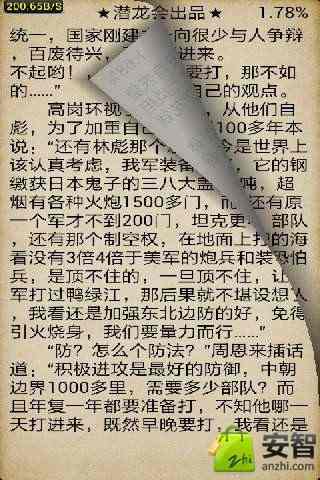 200.65B/S
★潜龙会出品★ 1.78%
统一，国家刚建 向很少与人争辩
，百废待兴， 进来。
不起哟！， 要打，那不如
的……” 自己的观点。
高岗环视 从他们自
彪，为了加重自己 100多年本
说：“还有林彪那个 今是世界上
该认真考虑，我军装备 它的钢
缴获日本鬼子的三八大盖 吨，超
烟有各种火炮1500多门，而 还有原
一个军才不到200门，坦克更 部队
，还有那个制空权，在地面上打 的海
看没有3倍4倍于美军的炮兵和装 恐怕
兵，是顶不住的，一旦顶不住，让
军打过鸭绿江，那后果就不堪设想 人
，我看还是加强东北边防的好，免得
引火烧身，我们要量力而行……”
“防？怎么个防法？”周恩来插话
道：“积极进攻是最好的防御，中朝
边界1000多里，需要多少部队？而
且年复一年都要准备打，不知他哪一
天打进来，既然早晚要打，我看还是
安智
zhi
anzhi.com